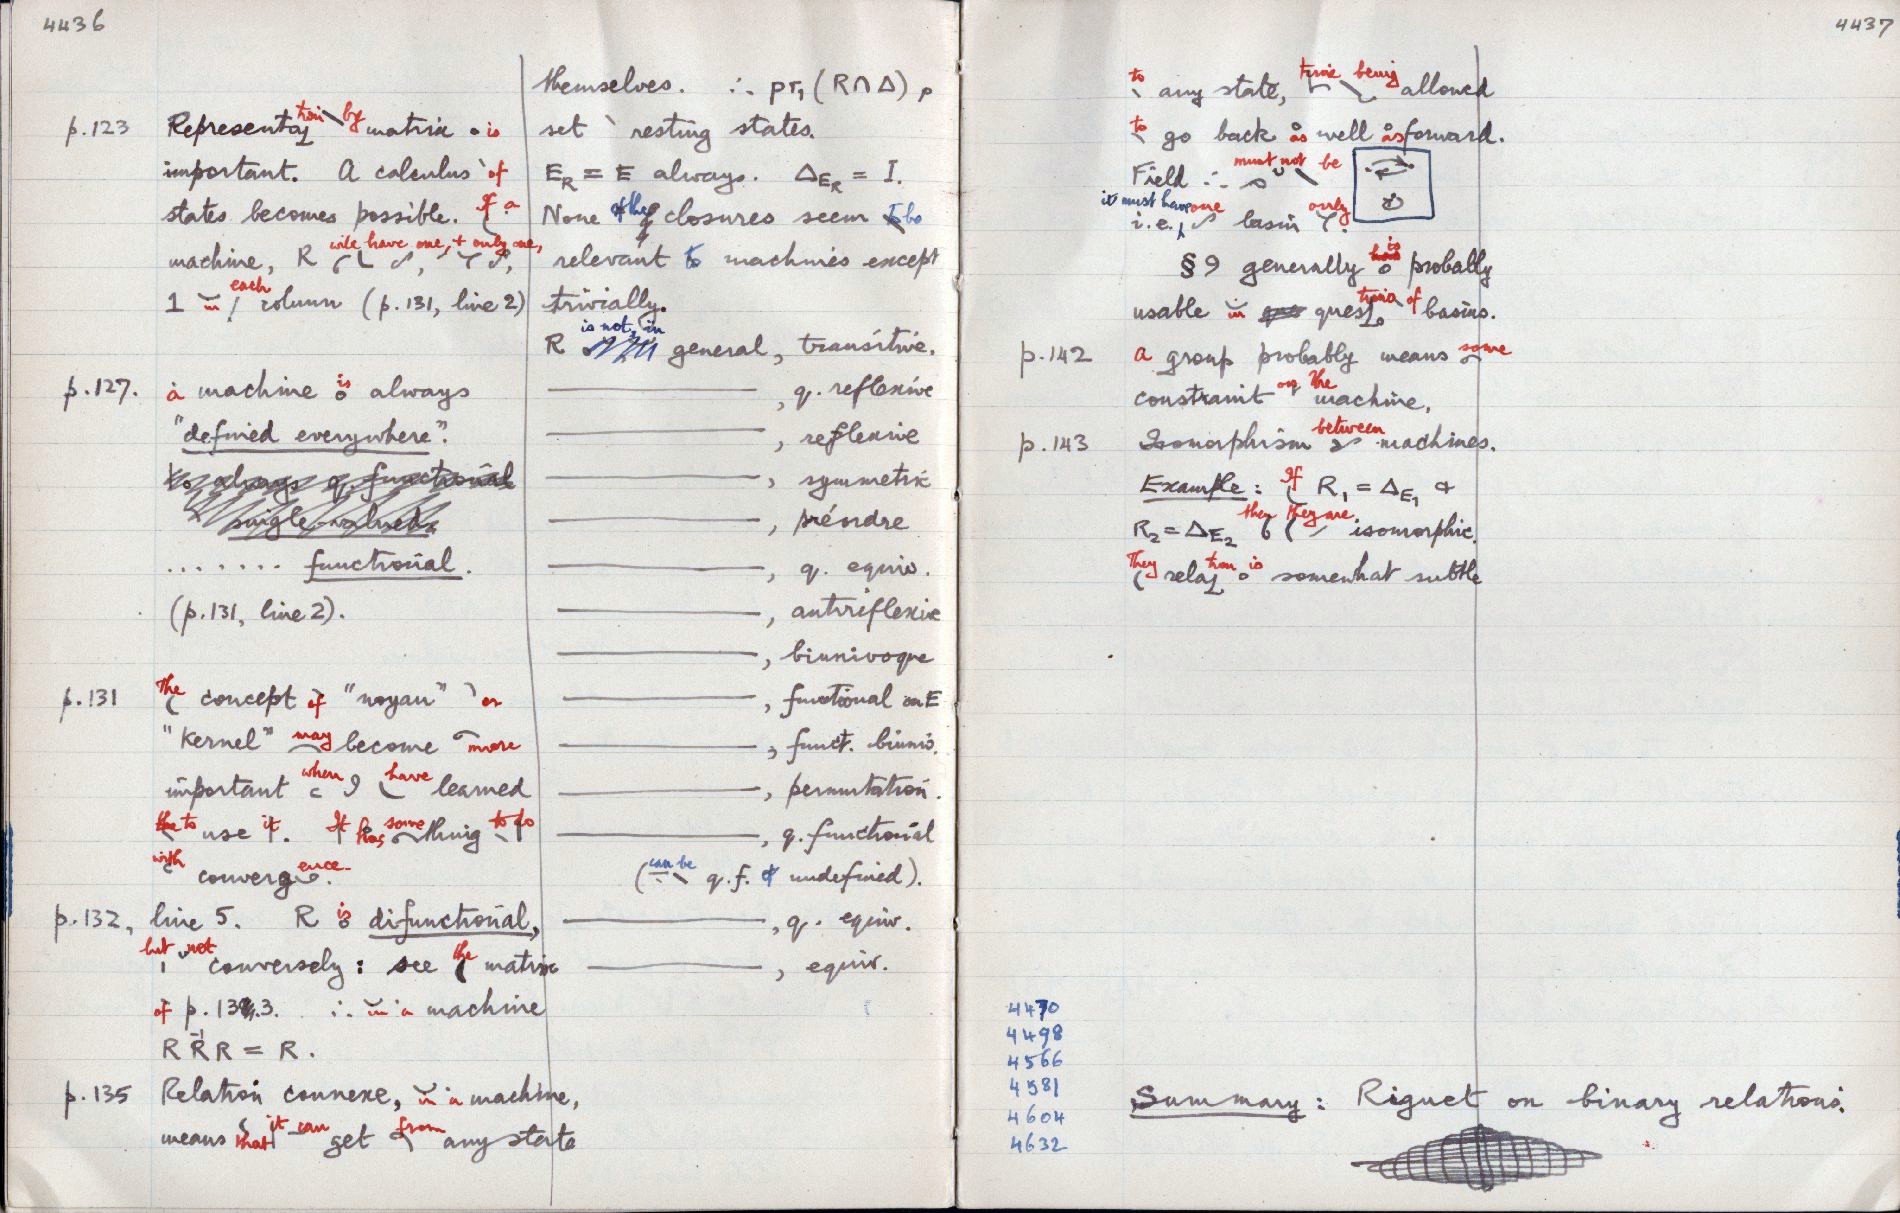 4436
p.123 Representation by matrix is
important. A calculus of
states becomes possible. If a
machine, R will have one, & only one,
1 in each column (p.131, line 2)
p.127. a machine is always
"defined everywhere".
....... functional.
(p.131, line 2).
p.131 The concept of "noyau" or
"Kernel" may become more
important when I have learned
to use it. It has something to do
with convergence.
p.132, line 5. R is difunctional,
but not conversely: see the matrix
of p.13 .3. ∴ in a machine
R R⁻¹ R = R.
p.135 Relation connexe, in a machine,
means that it can get from any state
themselves. ∴ pr₁ (R∩Δ)
set resting states.
E_R = E always. Δ_E_R = I.
None of the closures seem to be
relevant to machines except
trivially.
R is not, in general, transitive.
————, q. reflexive
————, reflexive
————, symmetric
————, préordre
————, q. equiv.
————, antireflexive
————, biunivoque
————, functional on E
————, funct. biuniv.
————, permutation.
————, q. functional
(can be q.f. & undefined).
————, q. equiv.
————, equiv.
4437
to any state, time being allowed
to go back as well as forward.
Field ∴ must not be
i.e., it must have one basin only.
§9 generally is probably
usable in question of basins.
p.142 a group probably means some
constraint on the machine.
p.143 Isomorphism between machines.
Example: If R₁ = Δ_E₁ &
R₂ = Δ_E₂ then they are isomorphic.
They relation is somewhat subtle
4470
4498
4566
4581
4604
4632
Summary: Riguet on binary relations.